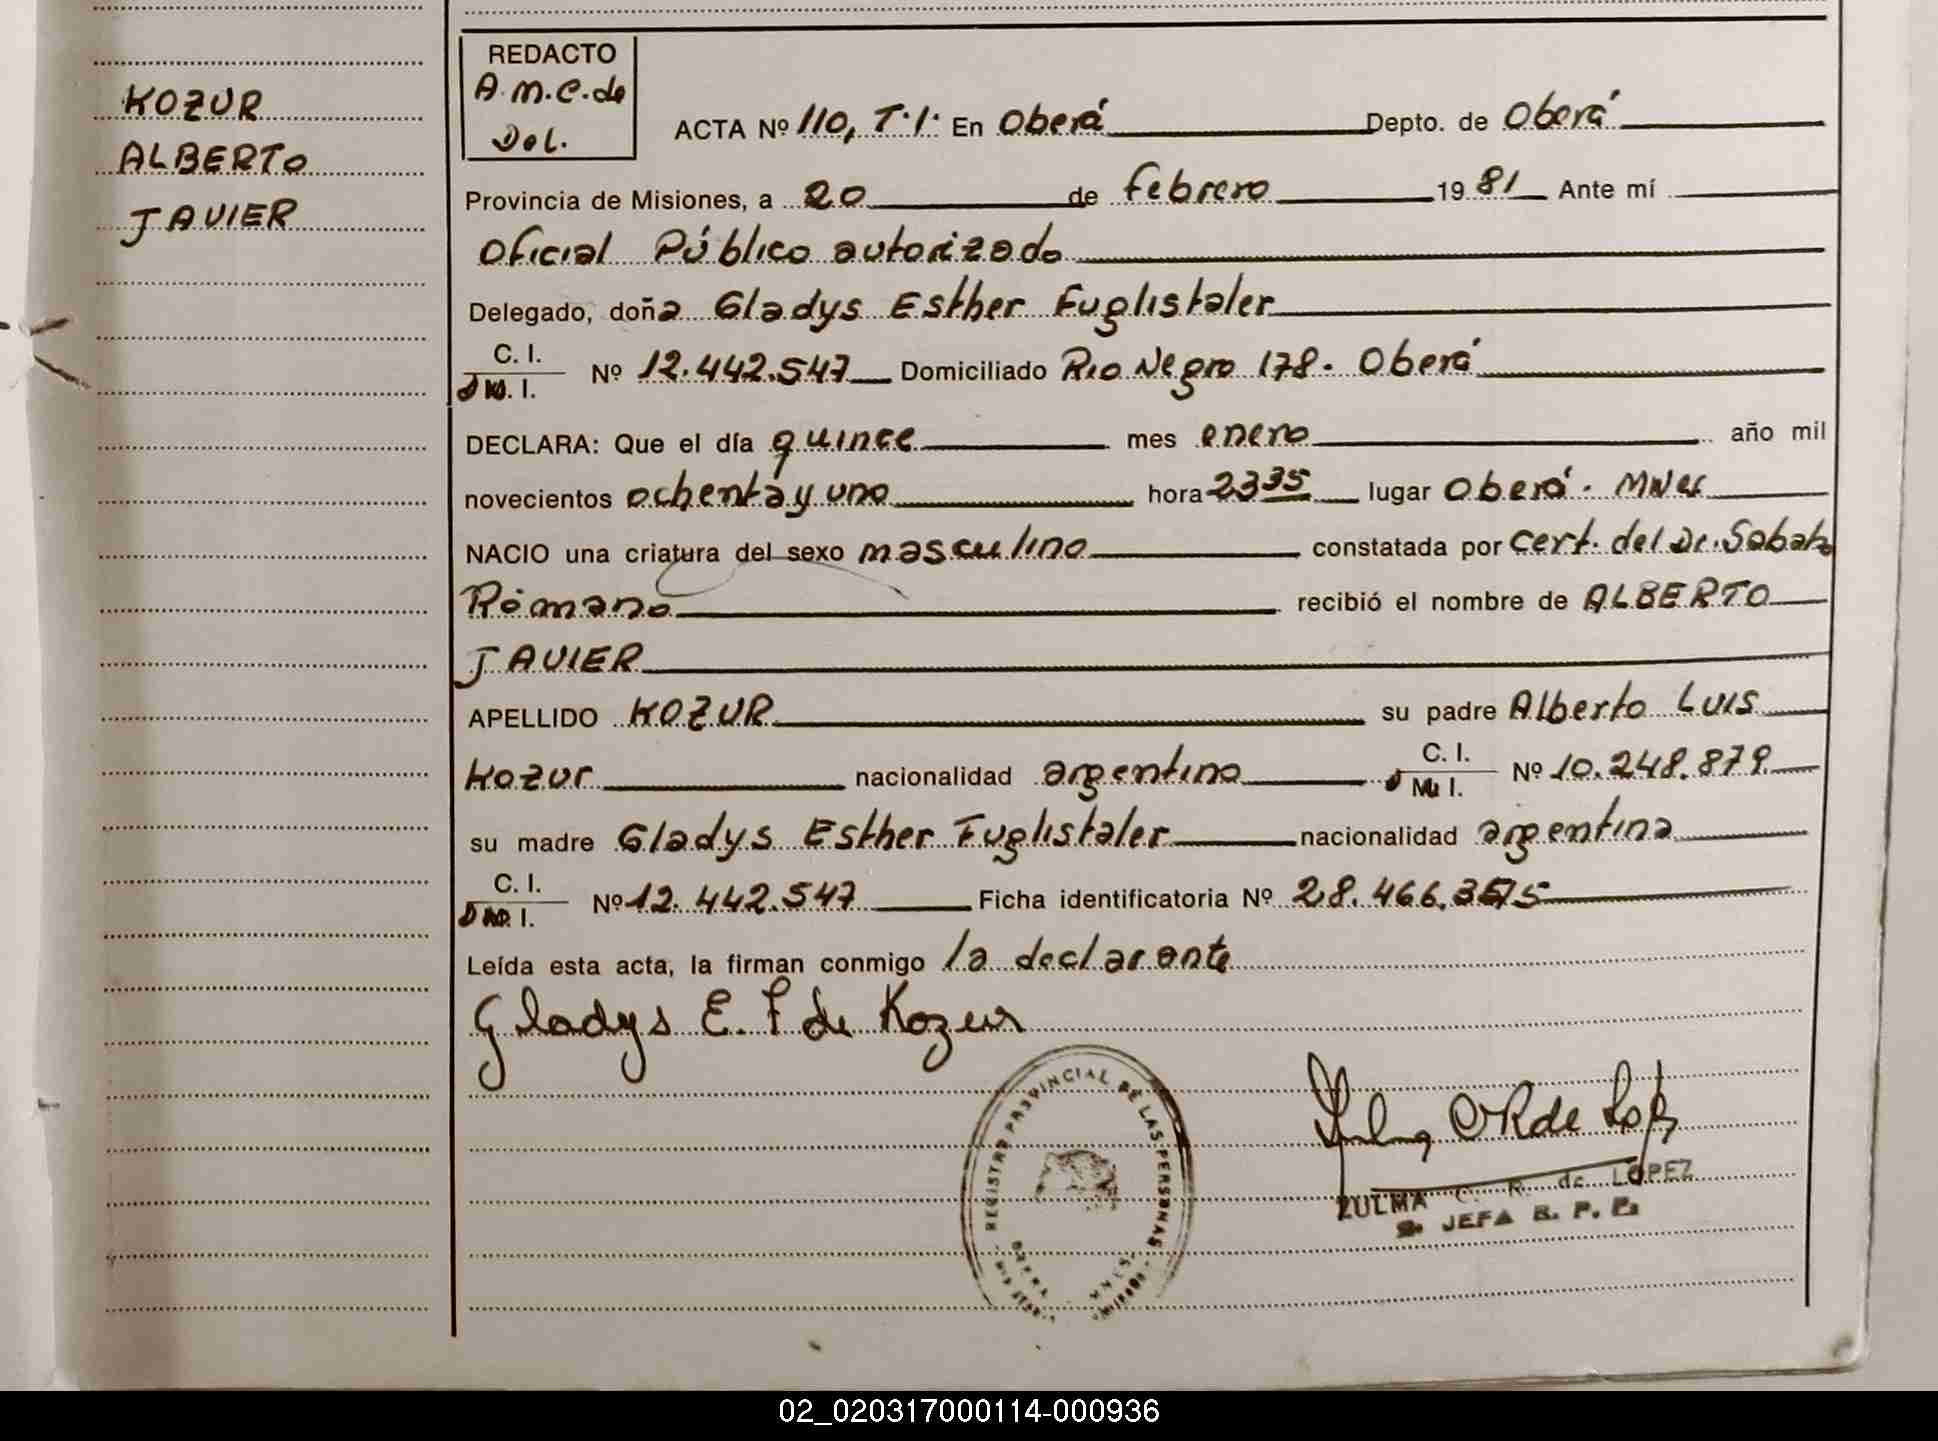 KOZUR
ALBERTO
JAVIER
REDACTO
A.M.C. de
Dol.
ACTA Nº 110, T.1. En Oberá Depto. de Oberá
Provincia de Misiones, a 20 de febrero 1981 Ante mí
Oficial Público autorizado
Delegado, doña Gladys Esther Fuglistaler
C. I.
D.N. I. Nº 12.442.547 Domiciliado Rio Negro 178. Oberá
DECLARA: Que el día quince mes enero año mil
novecientos ochenta y uno hora 23 35 lugar Oberá. MNes
NACIO una criatura del sexo masculino constatada por cert. del Dr. Sabato
Romano recibió el nombre de ALBERTO
JAVIER
APELLIDO KOZUR su padre Alberto Luis
Kozur nacionalidad argentino C. I. M. I. Nº 10.248.879
su madre Gladys Esther Fuglistaler nacionalidad argentina
C. I.
D.N. I. Nº 12.442.547 Ficha identificatoria Nº 28.466.
Leída esta acta, la firman conmigo la declarante
Gladys E. F de Kozur
REGISTRO PROVINCIAL DE LAS PERSONAS
OBERA MNES.
ZULMA C. R. de LOPEZ
JEFA R. P. P.
02_020317000114-000936